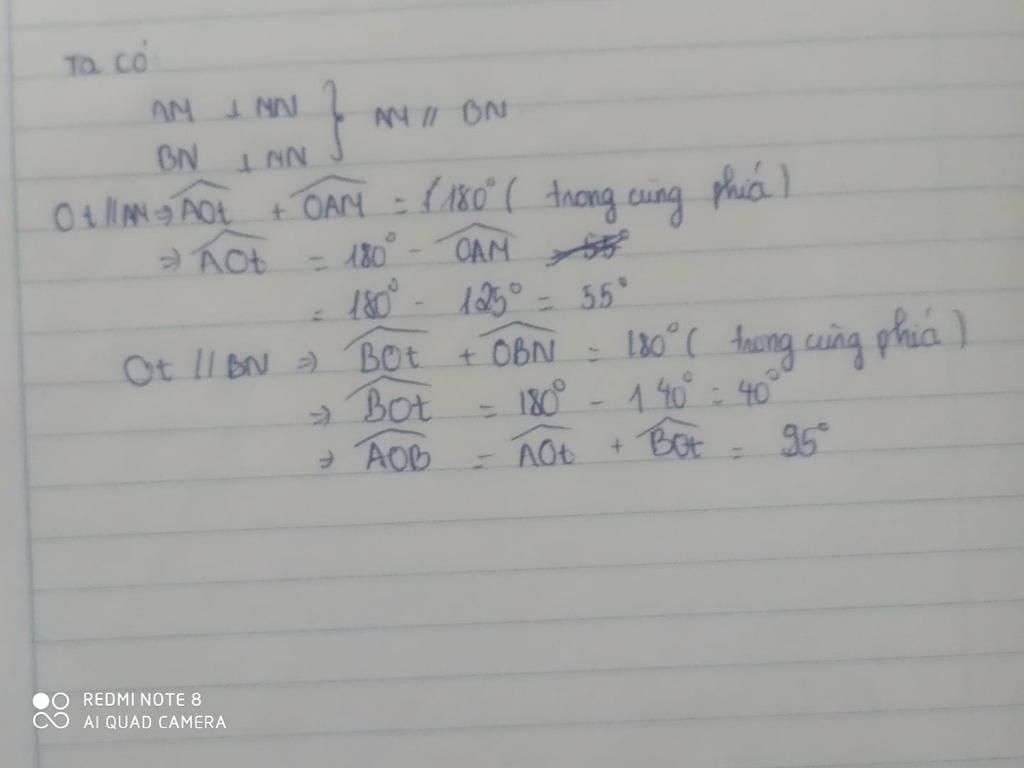 Ta có
AM ⊥ MN } AM // BN
BN ⊥ MN
Ot // AM ⇒ AOt + OAM = 180° ( trong cùng phiá )
⇒ AOt = 180° - OAM = 55°
= 180° - 125° = 55°
Ot // BN ⇒ BOt + OBN = 180° ( trong cùng phiá )
⇒ BOt = 180° - 140° = 40°
⇒ AOB = AOt + BOt = 95°
REDMI NOTE 8
AI QUAD CAMERA